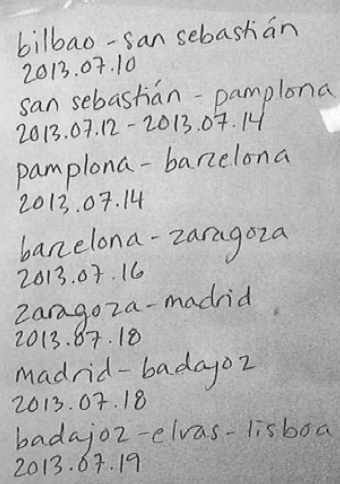 bilbao - san sebastián
2013.07.10
san sebastián - pamplona
2013.07.12 - 2013.07.14
pamplona - barcelona
2013.07.14
barcelona - zaragoza
2013.07.16
zaragoza - madrid
2013.07.18
madrid - badajoz
2013.07.18
badajoz - elvas - lisboa
2013.07.19